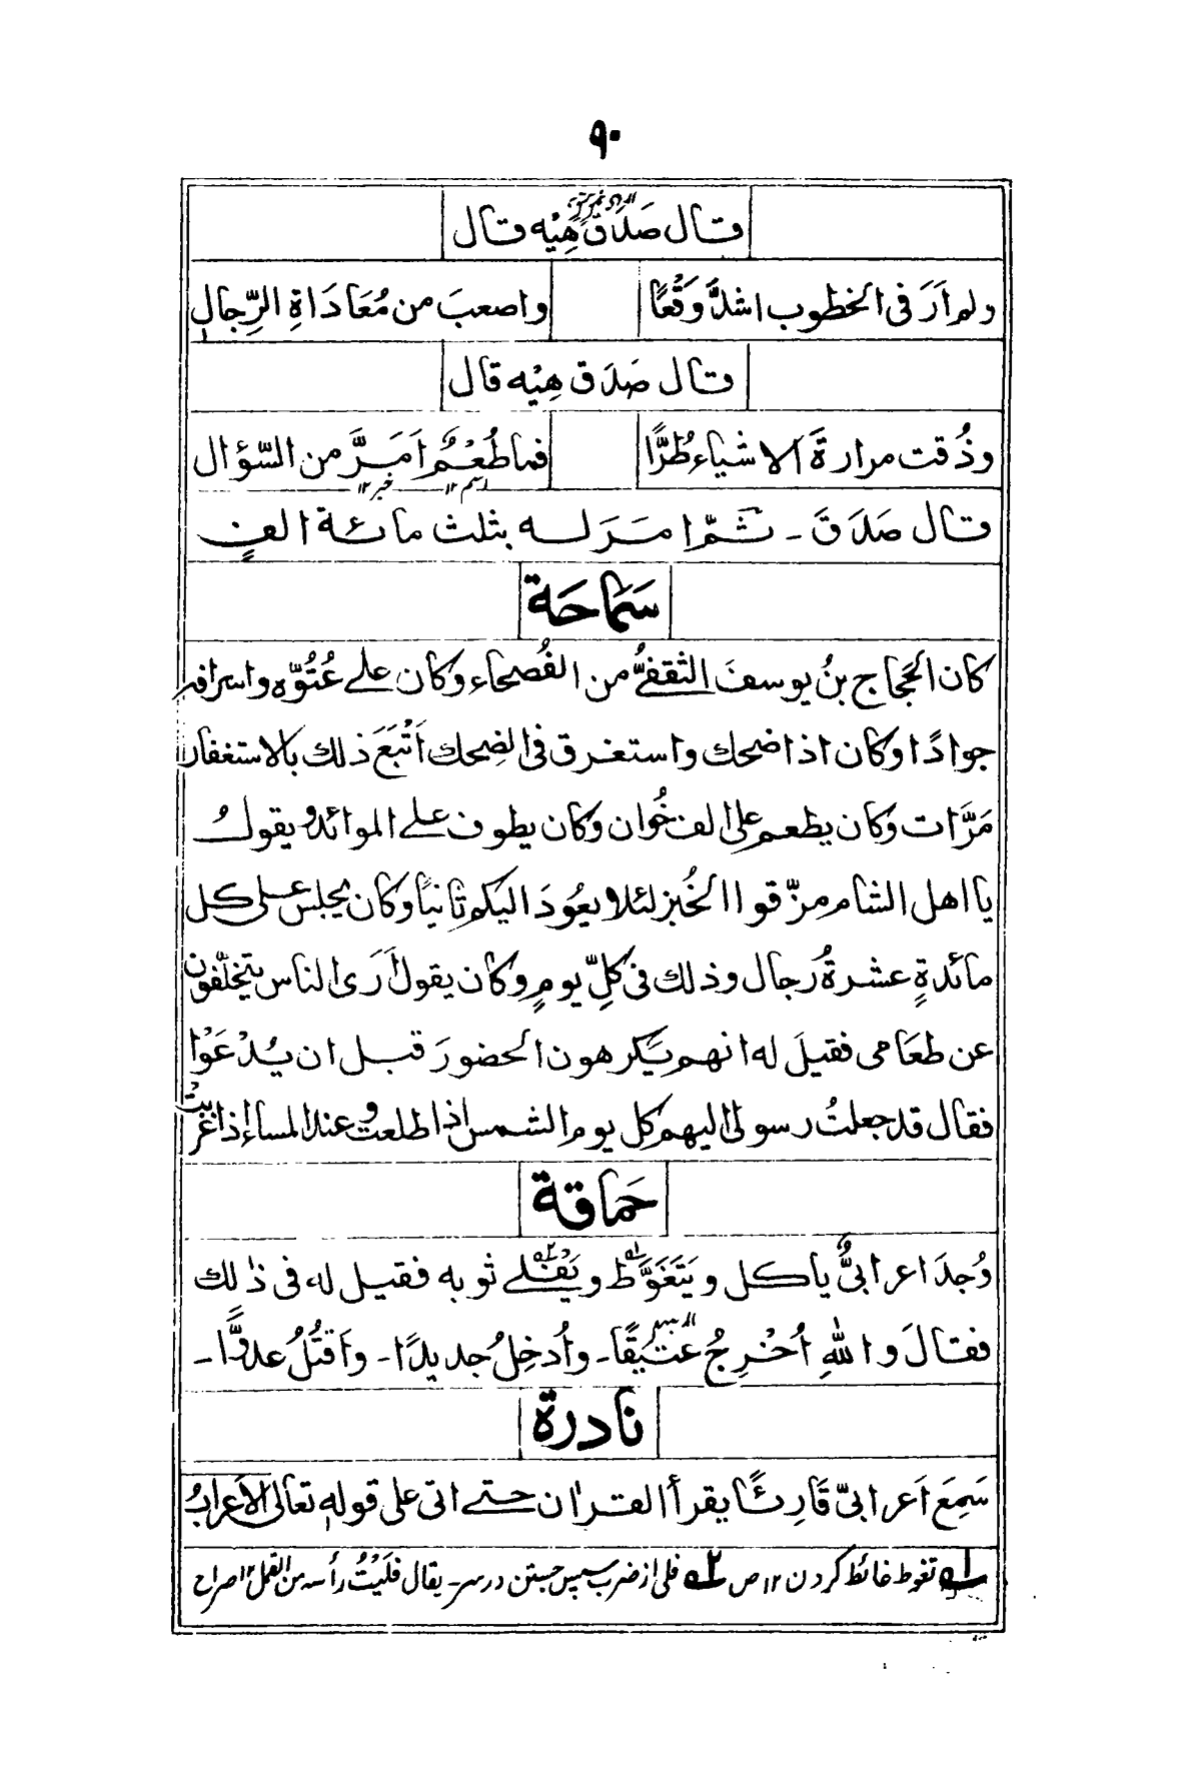 ٩٠
قال صَدَقَ هِيْه قال
ولم اَرَ فى الخطوب اشدَّ وَقْعًا واصعبَ من مُعَادَاةِ الرِّجال
قال صَدَقَ هِيْه قال
وذُقت مرارةَ الاشياء طُرًّا فما طُعْمٌ اَمَرَّ من السّؤال
اسم ١٢ خبر ١٢
قال صَدَقَ ـ ثمّ امَرَ له بثلث مائة الفٍ
سَمَاحَة
كان الحَجاج بنُ يوسفَ الثقفىُّ من الفُصحاء وكان على عُتُوّه واسرافه
جوادًا وكان اذا ضحك واستغرق فى الضِحك اَتْبَعَ ذلك بالاستغفار
مَرَّات وكان يطعم على الف خُوان وكان يطوف على الموائد ويقولُ
يا اهل الشام مزّقوا الخُبز لئلا يعُودَ اليكم ثانيًا وكان يجلس على كل
مائدةٍ عشرةُ رجال وذلك فى كلِّ يومٍ وكان يقول اَرَى الناس يتخلّفون
عن طعَامى فقيلَ له انهم يَكرهون الحضورَ قبل ان يُدْعَوْا
فقال قد جعلتُ رسولى اليهم كل يوم الشمس اذا طلعت وعند المساء اذا غربت
حَماقة
وُجِدَ اعرابىٌّ ياكل ويَتَغَوَّط ويَفْلى ثوبه فقيل له فى ذلك
فقالَ واللهِ اُخْرِجُ عَتيْقًا ـ واُدخِلُ جديدًا ـ واَقتُلُ عدوًّا ـ
نادرة
سَمِعَ اَعرابىّ قَارِئًا يقرأ القران حتى اتى على قوله تعالى الاَعرابُ
له تغوط غائط كردن ١٢ ص ٢ه فلى از ضرب سپس جستن در سر ـ يقال فلَيْتُ رأسه من القمل ١٢ صراح